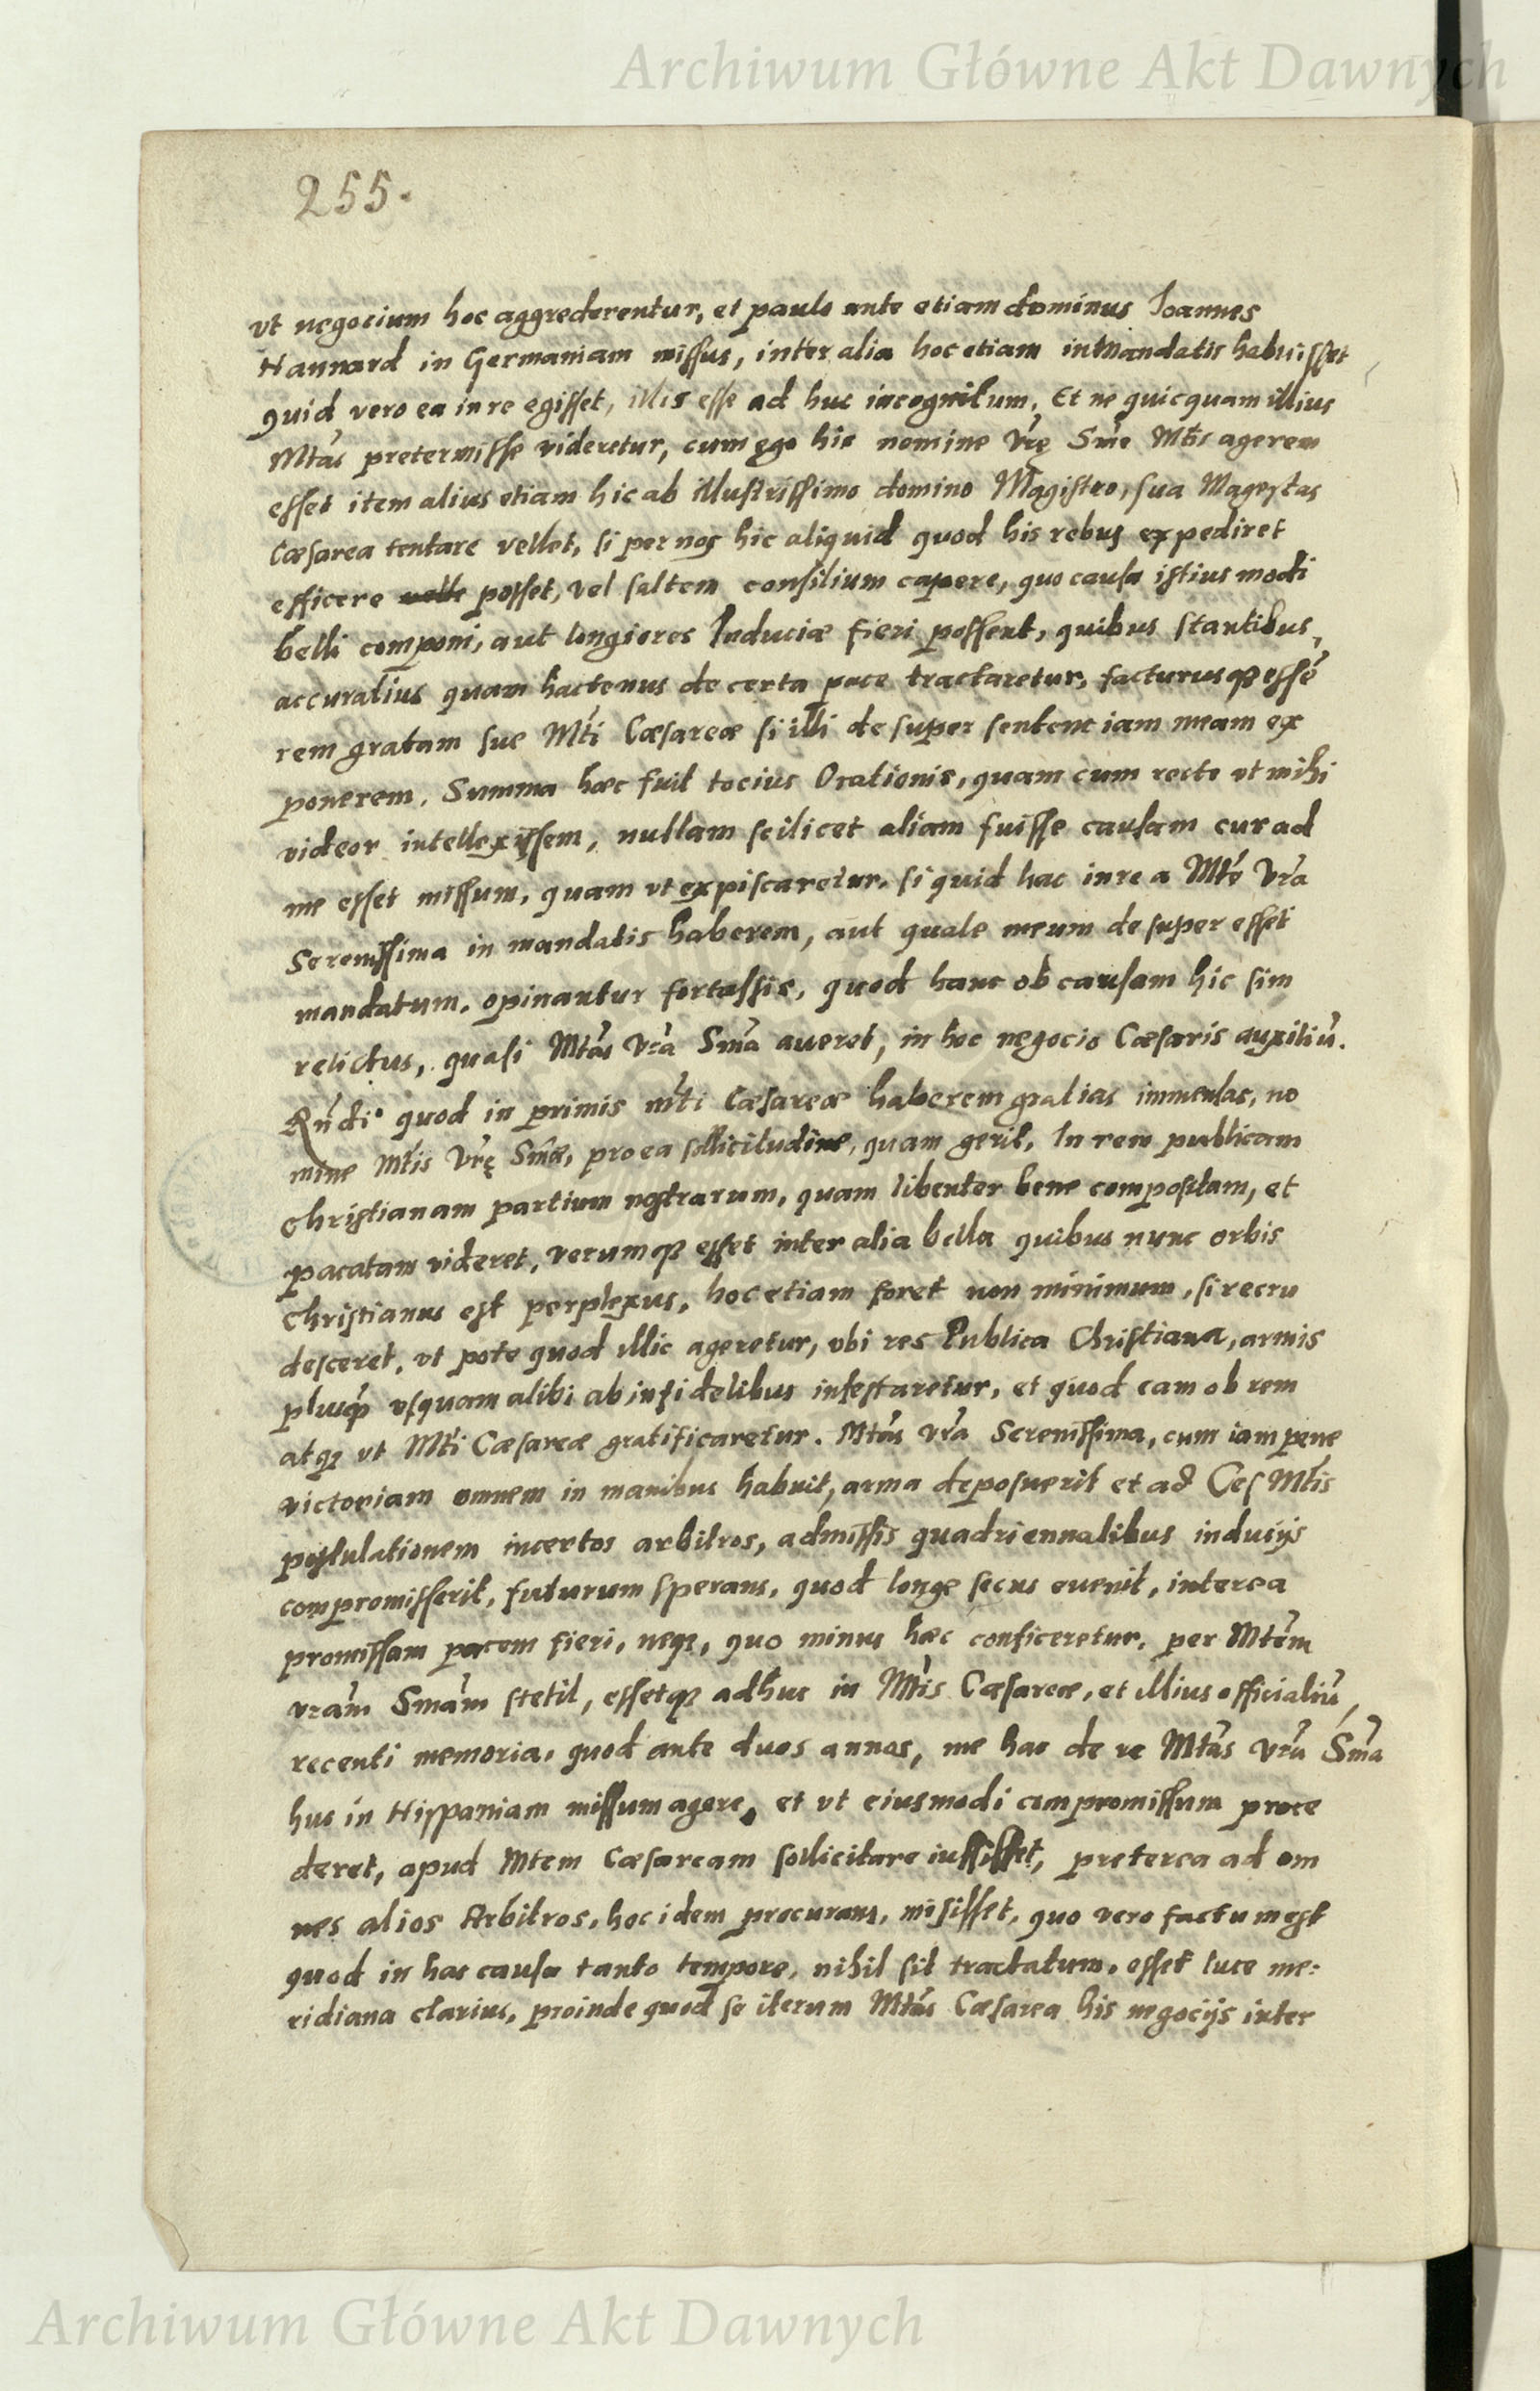 Archiwum Główne Akt Dawnych
255.
vt negocium hoc aggrederentur, et paulo ante etiam dominus Ioannes
Hannard in Germaniam missus, inter alia hoc etiam in Mandatis habuisset
quid vero ea in re egisset, illis esse ad huc incognitum. Et ne quicquam illius
Mtas pretermisse videretur, cum ego hic nomine Vrę Sme Mtis agerem
esset item alius etiam hic ab illustrissimo domino Magistro, sua Magestas
Cæsarea tentare vellet, si per nos hic aliquid quod his rebus expediret
efficere velle posset, vel saltem consilium capere, quo causa istius modi
belli componi, aut longiores Induciæ fieri possent, quibus stantibus,
accuratius quam hactenus de certa pace tractaretur, facturusqȝ essē
rem gratam sue Mti Cæsareæ si illi de super sentenciam meam ex
ponerem. Summa hæc fuit tocius Orationis, quam cum recte vt mihi
videor intellexissem, nullam scilicet aliam fuisse causam cur ad
me esset missum, quam vt expiscaretur, si quid hac in re a Mte Vra
Serenissima in mandatis haberem, aut quale meum de super esset
mandatum. opinantur fortassis, quod hanc ob causam hic sim
relictus, quasi Mtas Vra Sma averet, in hoc negocio Cæsaris auxiliū.
Rndi quod in primis mti Cæsareæ haberem gratias immensas, no
mine Mtis Vrę Smæ, pro ea sollicitudine, quam gerit, In rem publicam
Christianam partium nostrarum, quam libenter bene compositam, et
pacatam videret, verumqȝ esset inter alia bella quibus nunc orbis
Christianus est perplexus, hoc etiam foret non minimum, si recru
desceret, vt pote quod illic ageretur, vbi res Publica Christiana, armis
plusqȝ vsquam alibi ab infidelibus infestaretur, et quod eam ob rem
atqȝ vt Mti Cæsareæ gratificaretur. Mtas Vra Serenissima, cum iam pene
victoriam omnem in manibus habuit, arma deposuerit et ad Ces Mtis
postulationem incertos arbitros, admissis quadriennalibus inducijs
compromisserit, futurum sperans, quod longe secus evenit, interea
promissam pacem fieri, neqȝ, quo minus hæc conficeretur, per Mtem
vram Smam stetit, essetqȝ adhuc in Mtis Cæsareæ, et illius officialiū,
recenti memoria, quod ante duos annos, me hac de re Mtas Vra Sma
huc in Hispaniam missum agere, et vt eiusmodi compromissum proce
deret, apud Mtem Cæsaream sollicitare iussisset, preterea ad om
nes alios Arbitros, hoc idem procurans, misisset, quo vero factum est
quod in hac causa tanto tempore, nihil sit tractatum, esset luce me:
ridiana clarius, proinde quod se iterum Mtas Cæsarea his negocijs inter
Archiwum Główne Akt Dawnych